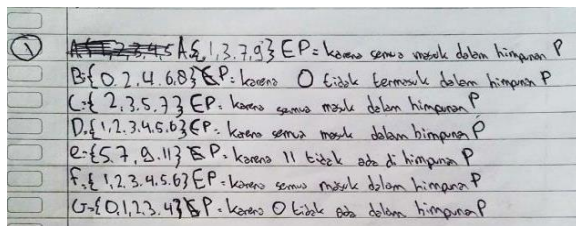 ① A{,1,3.7,9} E P = karena semua masuk dalam himpunan P
B={0,2,4,6,8} E P = karena 0 tidak termasuk dalam himpunan P
C={2,3,5,7} E P = karena semua masuk dalam himpunan P
D,{1,2,3,4,5,6} E P = karena semua masuk dalam himpunan P
e={5,7,9,11} E P = karena 11 tidak ada di himpunan P
F,{1,2,3,4,5,6} E P = karena semua masuk dalam himpunan P
G={0,1,2,3,4} E P = karena 0 tidak ada dalam himpunan P